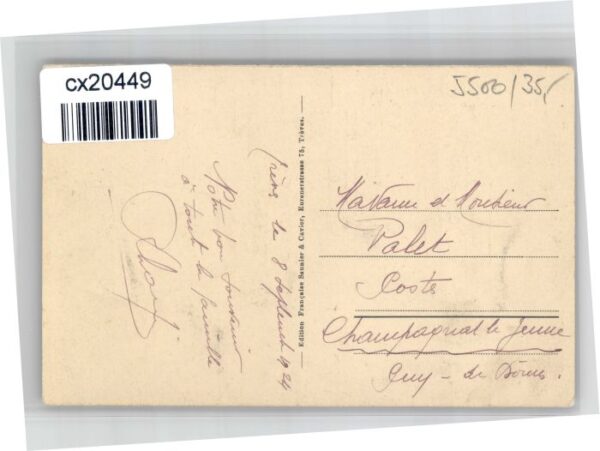 cx20449
5500/35,-
Trèves le 8 Septembre 1924
Notre bon souvenir
à toute la famille
Edition Française Saunier & Cavier, Eurenerstrasse 75, Trèves.
Madame et Monsieur
Palet
Poste
Champagnat le Jeune
Puy-de-Dôme.